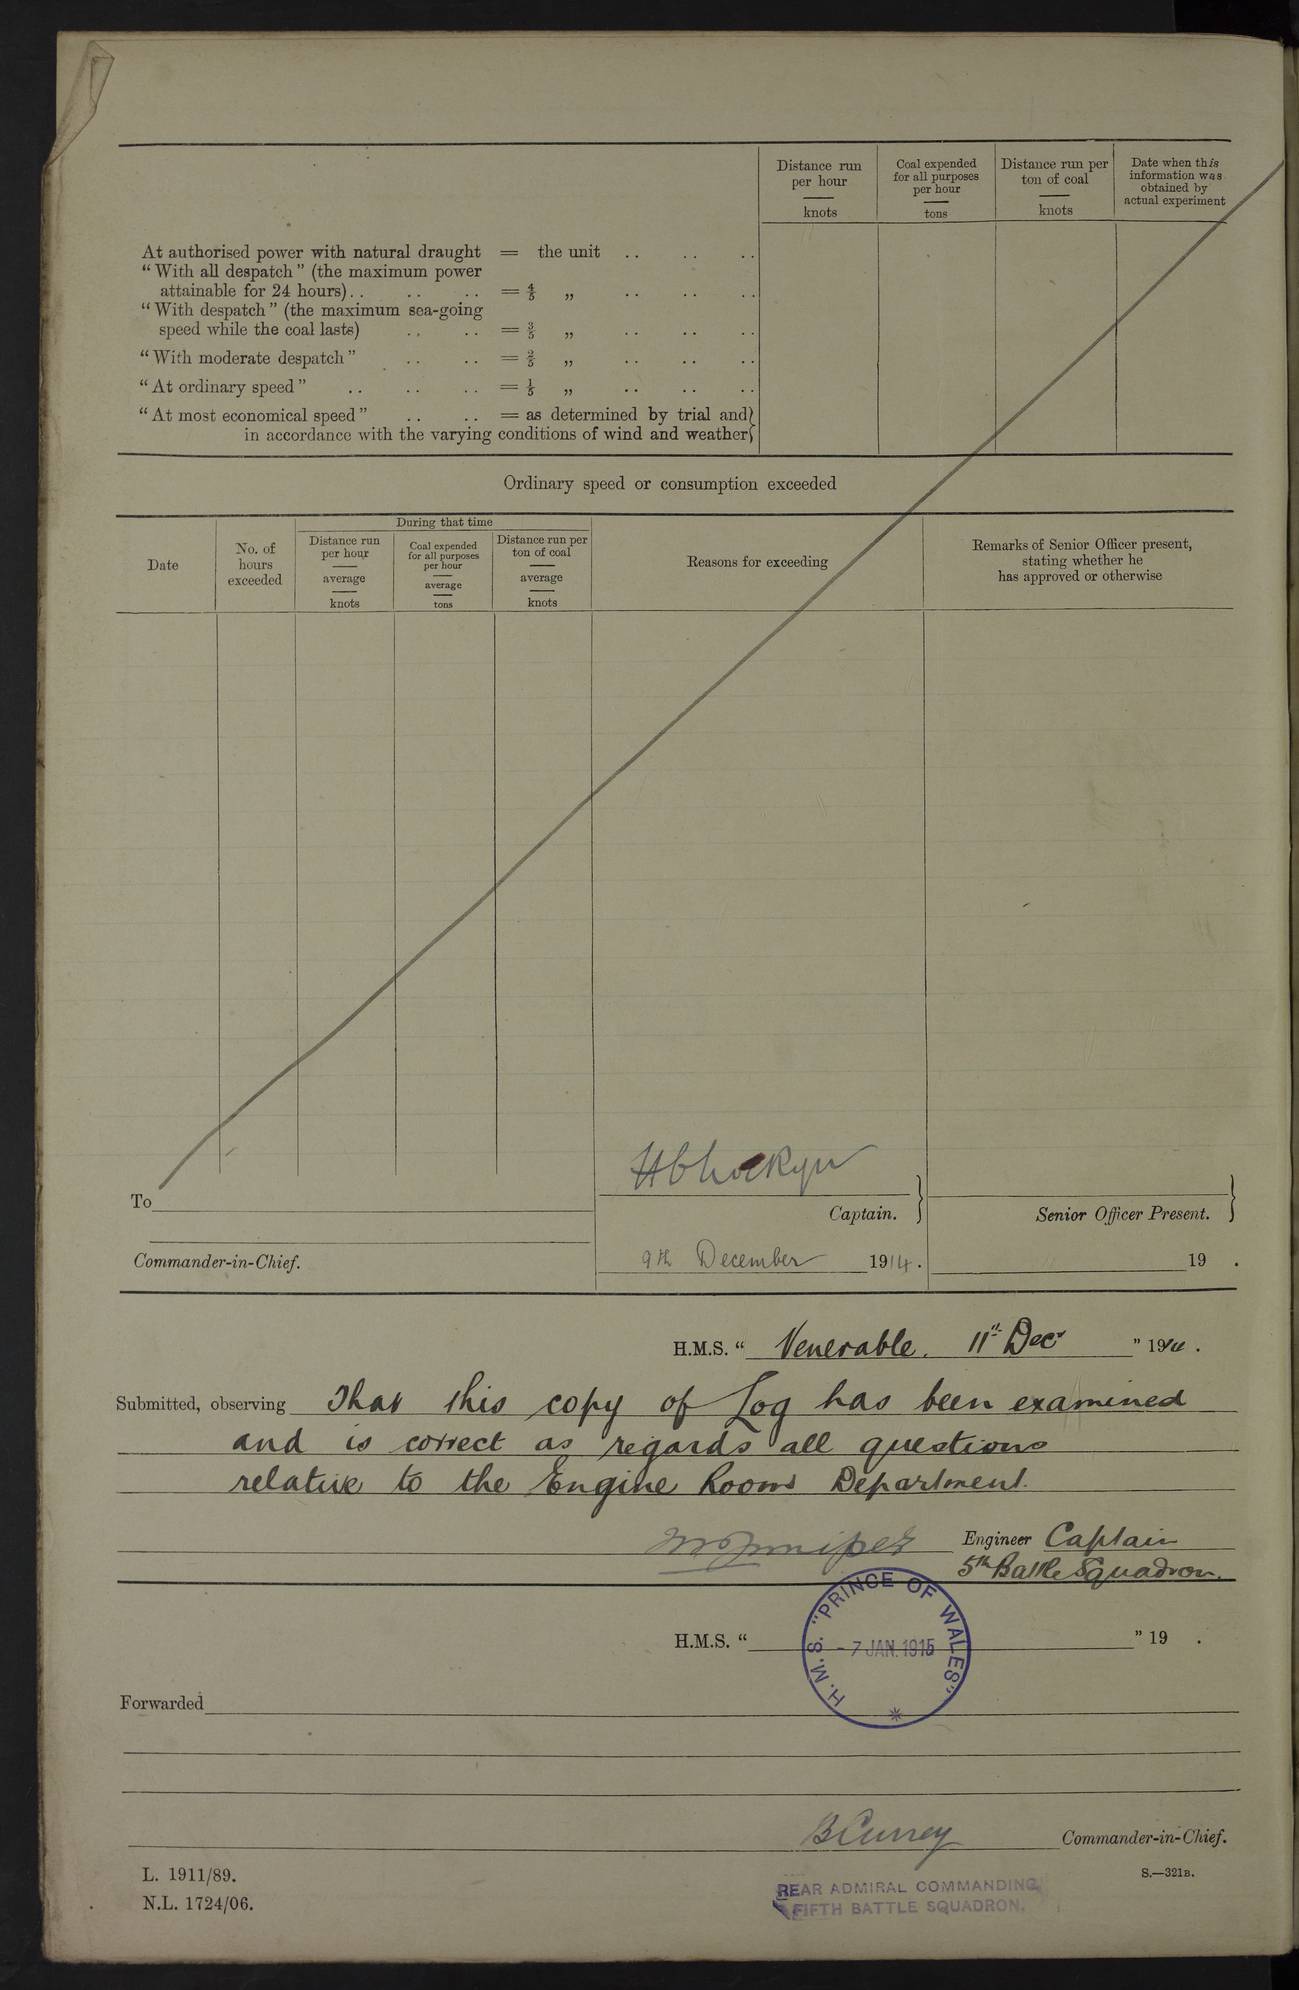 Distance run per hour knots
Coal expended for all purposes per hour tons
Distance run per ton of coal knots
Date when this information was obtained by actual experiment
At authorised power with natural draught = the unit .. .. ..
“With all despatch” (the maximum power
attainable for 24 hours).. .. .. = 4/5 „ .. .. ..
“With despatch” (the maximum sea-going
speed while the coal lasts) .. .. = 3/5 „ .. .. ..
“With moderate despatch” .. .. = 2/5 „ .. .. ..
“At ordinary speed” .. .. .. = 1/5 „ .. .. ..
“At most economical speed” .. .. = as determined by trial and
in accordance with the varying conditions of wind and weather
Ordinary speed or consumption exceeded
Date
No. of hours exceeded
During that time
Distance run per hour average knots
Coal expended for all purposes per hour average tons
Distance run per ton of coal average knots
Reasons for exceeding
Remarks of Senior Officer present, stating whether he has approved or otherwise
To
Captain.
Senior Officer Present.
Commander-in-Chief.
9th December 1914.
19 .
H.M.S. “ Venerable. 11th Decr ” 1914.
Submitted, observing That this copy of Log has been examined
and is correct as regards all questions
relative to the Engine Room Department.
Engineer Captain
5th Battle Squadron.
H.M.S. “ ” 19 .
H.M.S. “PRINCE OF WALES”
- 7 JAN. 1915
Forwarded
B Currey
Commander-in-Chief.
REAR ADMIRAL COMMANDING,
FIFTH BATTLE SQUADRON.
L. 1911/89.
N.L. 1724/06.
S.—321B.